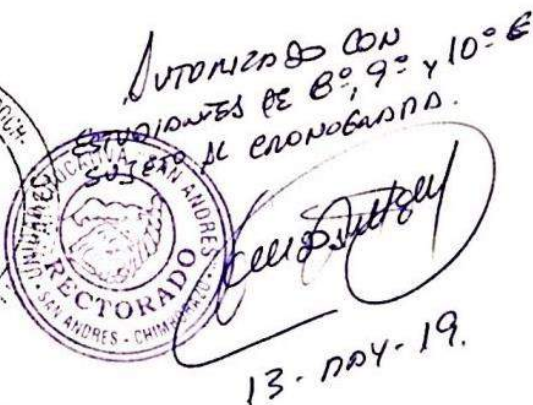 AUTORIZADO CON
ESTUDIANTES DE 8º, 9º y 10º E
SUJETO AL CRONOGRAMA.
UNIDAD EDUCATIVA SAN ANDRES
RECTORADO
SAN ANDRES - CHIMBORAZO
13 - MAY - 19.